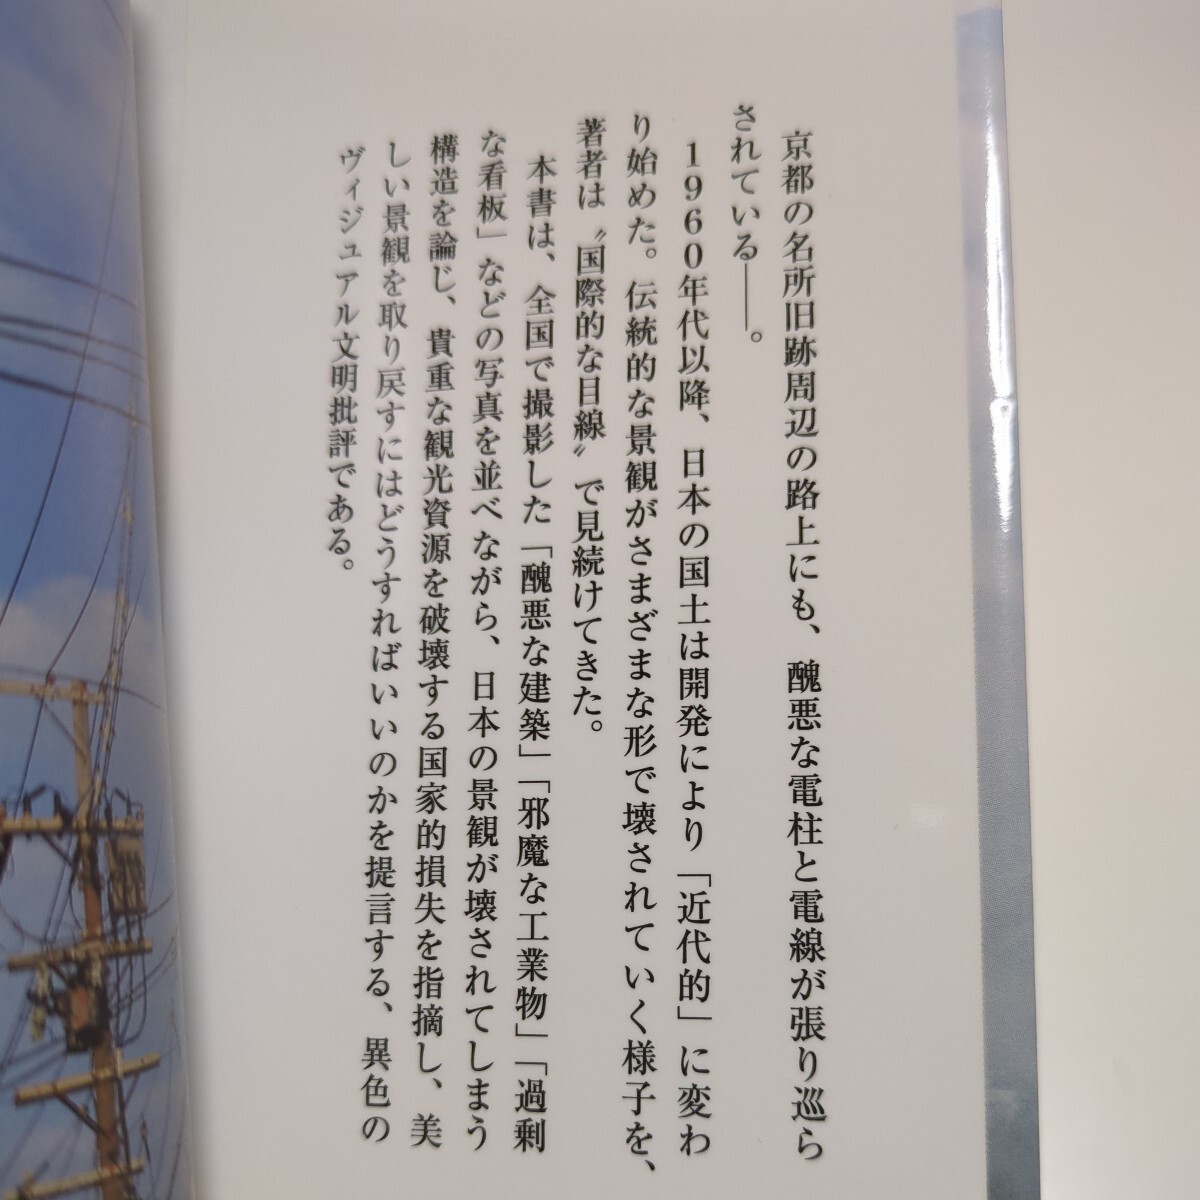 京都の名所旧跡周辺の路上にも、醜悪な電柱と電線が張り巡ら
されている――。
1960年代以降、日本の国土は開発により「近代的」に変わ
り始めた。伝統的な景観がさまざまな形で壊されていく様子を、
著者は〝国際的な目線〟で見続けてきた。
本書は、全国で撮影した「醜悪な建築」「邪魔な工業物」「過剰
な看板」などの写真を並べながら、日本の景観が壊されてしまう
構造を論じ、貴重な観光資源を破壊する国家的損失を指摘し、美
しい景観を取り戻すにはどうすればいいのかを提言する、異色の
ヴィジュアル文明批評である。